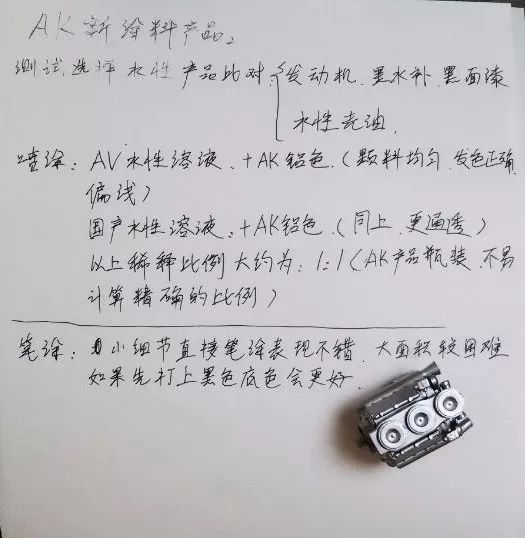 AK新涂料产品。
测试选择水性产品比对：发动机、墨水补、黑面漆
水性壳油。
喷涂：AV水性溶液、+AK铝色、（颗料均匀、发色正确
偏浅）
国产水性溶液、+AK铝色、（同上、更通透）
以上稀释比例大约为：1:1（AK产品瓶装、不易
计算精确的比例）
笔涂：小细节直接笔涂表现不错、大面积较困难
如果先打上黑色底色会更好。